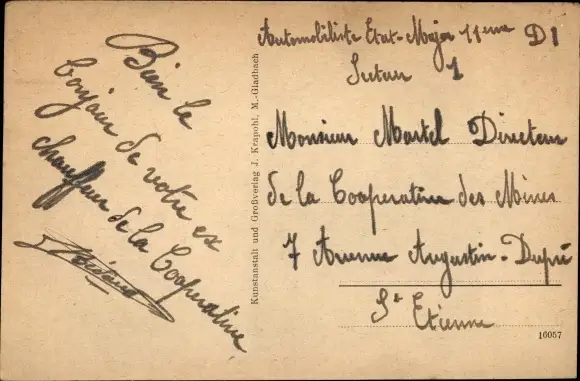 Bien le
bonjour de votre ex
chauffeur de la Cooperative
Kunstanstalt und Großverlag J. Krapohl, M.-Gladbach
Automobiliste Etat-Major 11eme DI
Secteur 1
Monsieur Martel Directeur
de la Cooperative des Mines
7 Avenue Augustin-Dupré
St Etienne
16057